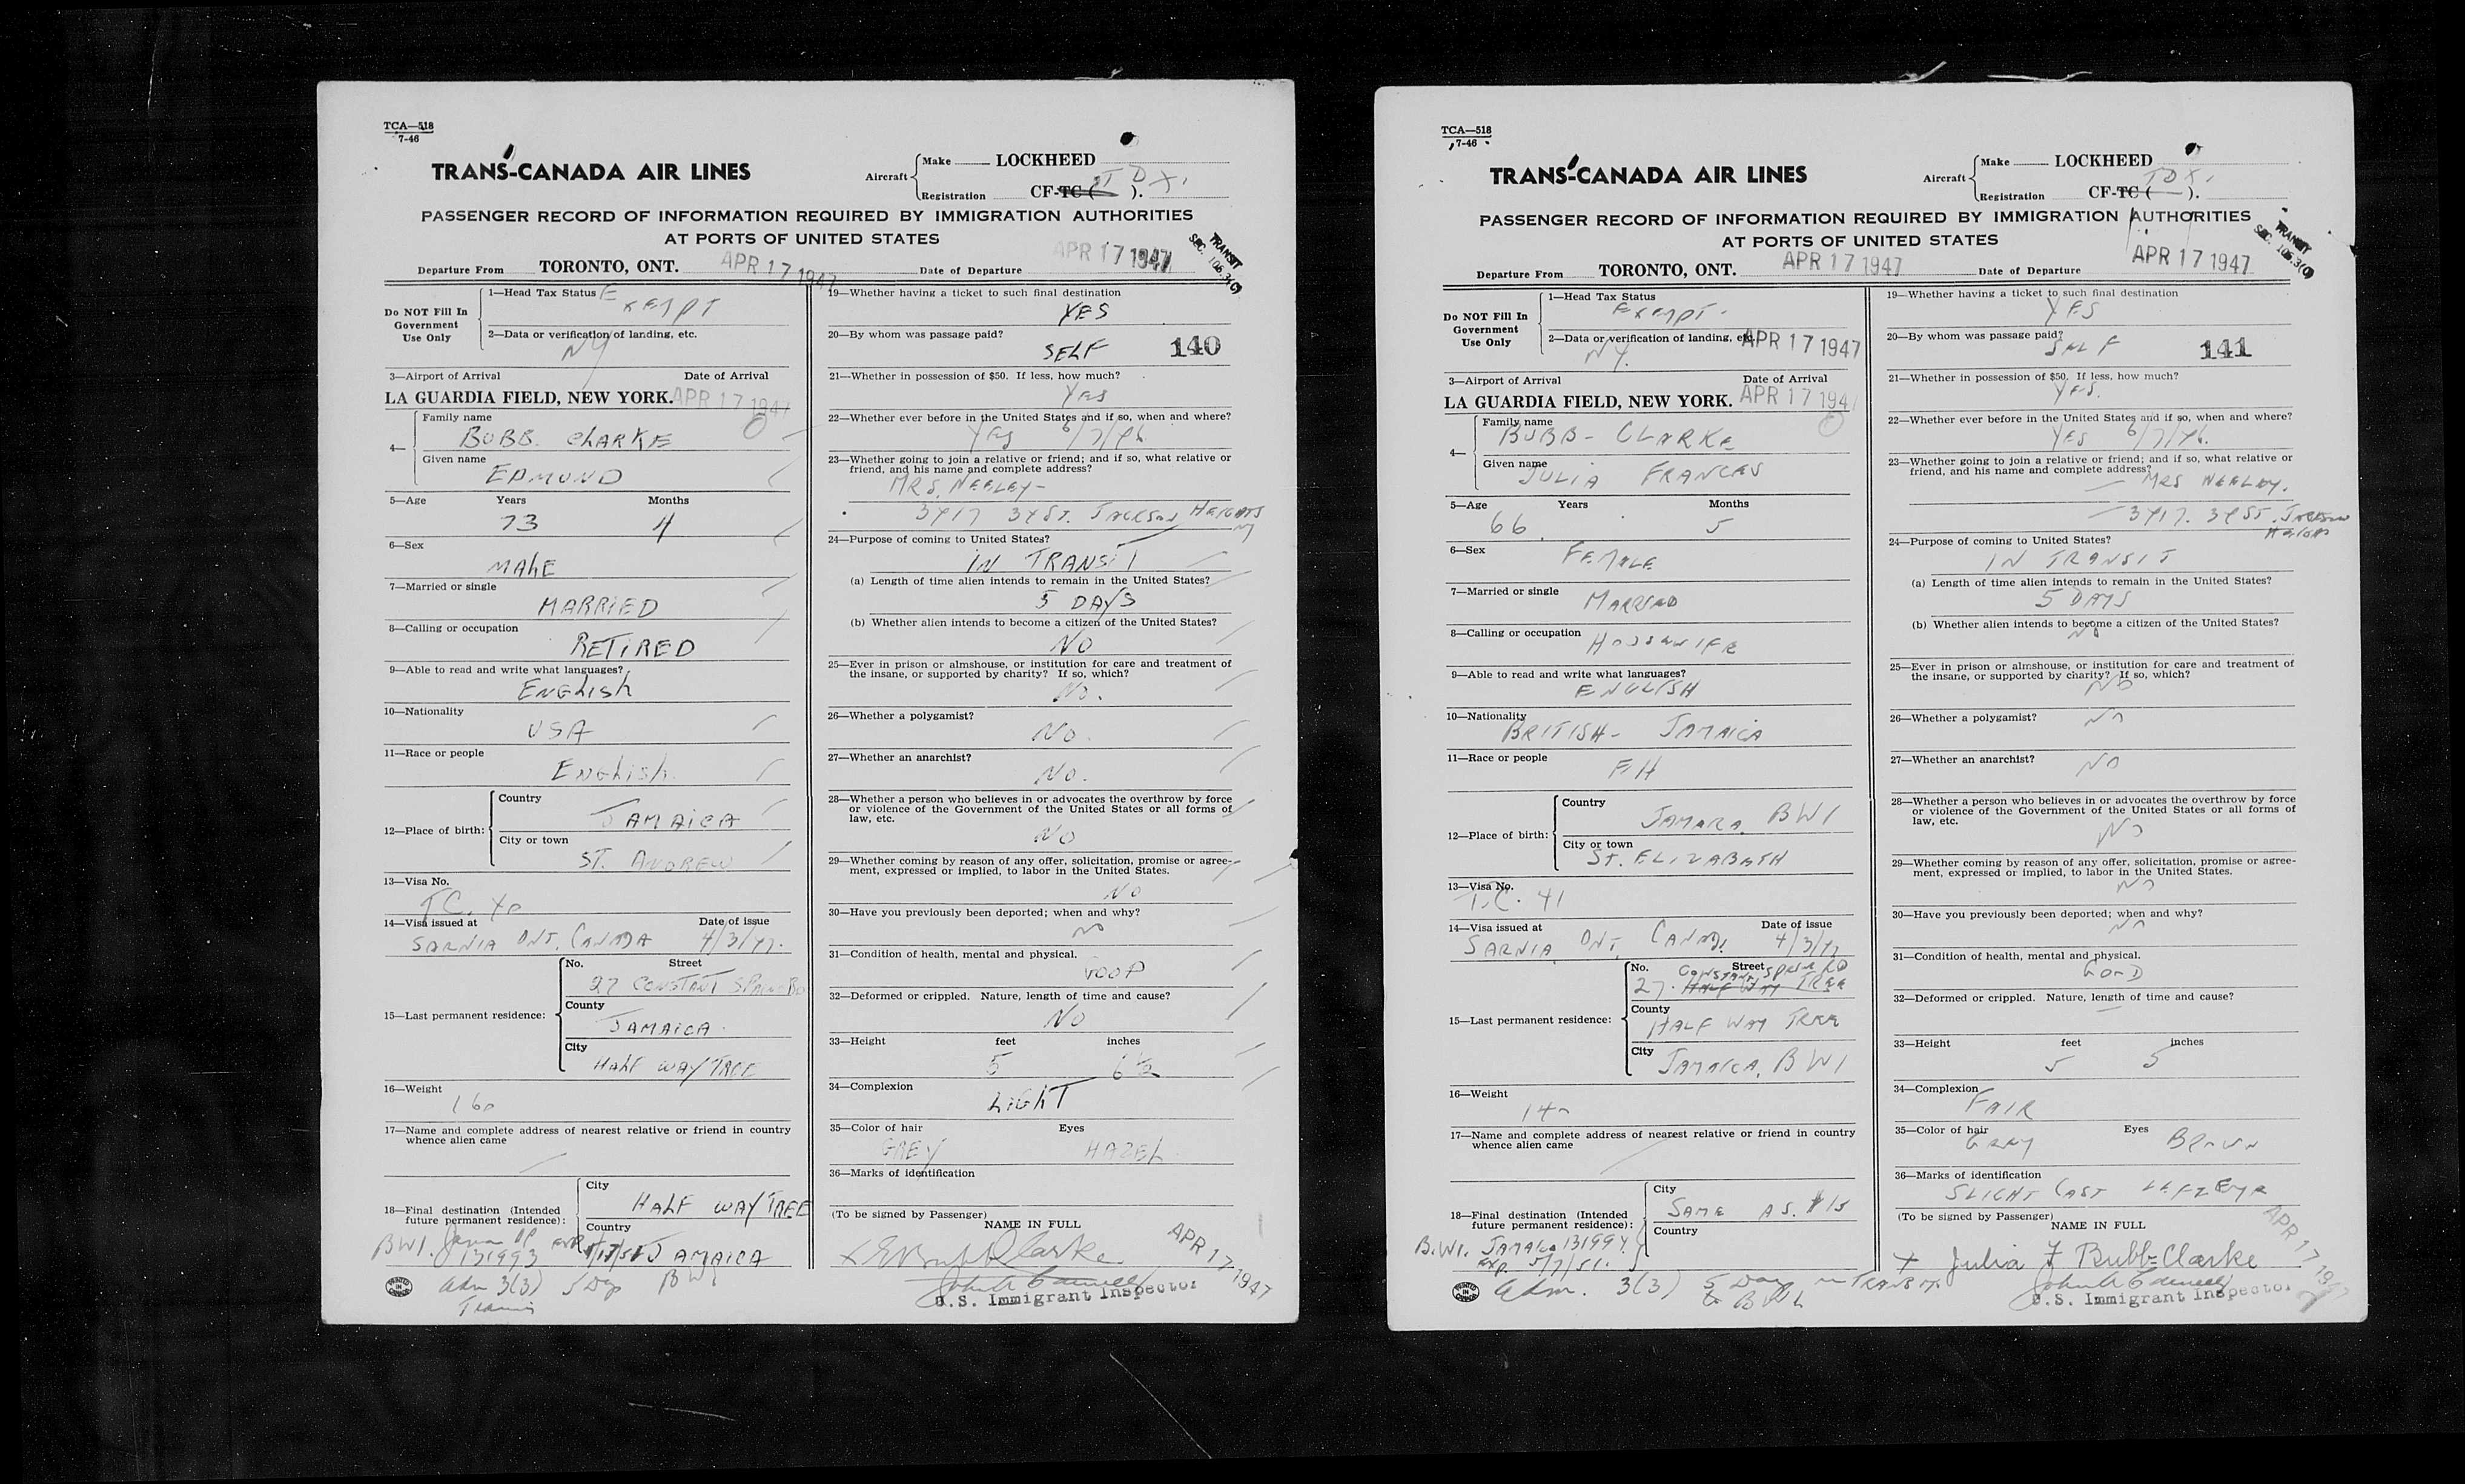 TCA—518
7-46
TRANS-CANADA AIR LINES
Aircraft
Make LOCKHEED
Registration CF-TC ( ). TDX
PASSENGER RECORD OF INFORMATION REQUIRED BY IMMIGRATION AUTHORITIES
AT PORTS OF UNITED STATES
TRANSIT
SEC. 106.3(C)
Departure From TORONTO, ONT. APR 17 1947 Date of Departure APR 17 1947
Do NOT Fill In Government Use Only
1—Head Tax Status Exempt
2—Data or verification of landing, etc.
NY
3—Airport of Arrival Date of Arrival
LA GUARDIA FIELD, NEW YORK. APR 17 1947
4—
Family name
BUBB CLARKE
Given name
EDMUND
5—Age Years Months
73 4
6—Sex
MALE
7—Married or single
MARRIED
8—Calling or occupation
RETIRED
9—Able to read and write what languages?
ENGLISH
10—Nationality
USA
11—Race or people
ENGLISH
12—Place of birth:
Country
JAMAICA
City or town
ST. ANDREW
13—Visa No.
T.C. 40
14—Visa issued at Date of issue
SARNIA ONT. CANADA 4/3/47.
15—Last permanent residence:
No. Street
27 CONSTANT SPRING RD
County
JAMAICA
City
HALF WAY TREE
16—Weight
160
17—Name and complete address of nearest relative or friend in country
whence alien came
18—Final destination (Intended
future permanent residence):
City
HALF WAY TREE
Country
JAMAICA
BWI
B.W.I. 131993
Adm 3(3) 5 Day
PRINTED IN CANADA
19—Whether having a ticket to such final destination
YES
20—By whom was passage paid?
SELF 140
21—Whether in possession of $50. If less, how much?
YES
22—Whether ever before in the United States and if so, when and where?
YES 6/7/46
23—Whether going to join a relative or friend; and if so, what relative or
friend, and his name and complete address?
MRS. NEELEY-
3417 34 ST. JACKSON HEIGHTS
NY
24—Purpose of coming to United States?
IN TRANSIT
(a) Length of time alien intends to remain in the United States?
5 DAYS
(b) Whether alien intends to become a citizen of the United States?
NO
25—Ever in prison or almshouse, or institution for care and treatment of
the insane, or supported by charity? If so, which?
NO.
26—Whether a polygamist?
NO.
27—Whether an anarchist?
NO.
28—Whether a person who believes in or advocates the overthrow by force
or violence of the Government of the United States or all forms of
law, etc.
NO
29—Whether coming by reason of any offer, solicitation, promise or agree-
ment, expressed or implied, to labor in the United States.
NO
30—Have you previously been deported; when and why?
NO
31—Condition of health, mental and physical.
GOOD
32—Deformed or crippled. Nature, length of time and cause?
NO
33—Height feet inches
5 6 ½
34—Complexion
LIGHT
35—Color of hair Eyes
GREY HAZEL
36—Marks of identification
(To be signed by Passenger)
NAME IN FULL
x E Bubb Clarke
APR 17 1947
U.S. Immigrant Inspector
TCA—518
7-46
TRANS-CANADA AIR LINES
Aircraft
Make LOCKHEED
Registration CF-TC ( ). TDX
PASSENGER RECORD OF INFORMATION REQUIRED BY IMMIGRATION AUTHORITIES
AT PORTS OF UNITED STATES
TRANSIT
SEC. 106.3(C)
Departure From TORONTO, ONT. APR 17 1947 Date of Departure APR 17 1947
Do NOT Fill In Government Use Only
1—Head Tax Status
Exempt.
2—Data or verification of landing, etc. APR 17 1947
NY.
3—Airport of Arrival Date of Arrival
LA GUARDIA FIELD, NEW YORK. APR 17 1947
4—
Family name
BUBB- CLARKE
Given name
JULIA FRANCES
5—Age Years Months
66 5
6—Sex
FEMALE
7—Married or single
MARRIED
8—Calling or occupation
HOUSEWIFE
9—Able to read and write what languages?
ENGLISH
10—Nationality
BRITISH- JAMAICA
11—Race or people
12—Place of birth:
Country
JAMAICA BWI
City or town
ST. ELIZABETH
13—Visa No.
T.C. 41
14—Visa issued at Date of issue
SARNIA ONT. CANADA 4/3/47
15—Last permanent residence:
No. Street
27. CONSTANT SPRING RD
HALF WAY TREE
County
HALF WAY TREE
City
JAMAICA, BWI
16—Weight
140
17—Name and complete address of nearest relative or friend in country
whence alien came
18—Final destination (Intended
future permanent residence):
City
SAME AS. #15
Country
B.W.I. JAMAICA 131994
EXP. 5/7/51.
Adm. 3(3) 5 Day in TRANSIT
to BWI
PRINTED IN CANADA
19—Whether having a ticket to such final destination
YES
20—By whom was passage paid?
SELF 141
21—Whether in possession of $50. If less, how much?
YES.
22—Whether ever before in the United States and if so, when and where?
YES 6/7/46.
23—Whether going to join a relative or friend; and if so, what relative or
friend, and his name and complete address?
MRS NEELEY.
3417. 34 ST. JACKSON
HEIGHTS
24—Purpose of coming to United States?
IN TRANSIT
(a) Length of time alien intends to remain in the United States?
5 DAYS
(b) Whether alien intends to become a citizen of the United States?
NO
25—Ever in prison or almshouse, or institution for care and treatment of
the insane, or supported by charity? If so, which?
NO
26—Whether a polygamist? NO
27—Whether an anarchist? NO
28—Whether a person who believes in or advocates the overthrow by force
or violence of the Government of the United States or all forms of
law, etc.
NO
29—Whether coming by reason of any offer, solicitation, promise or agree-
ment, expressed or implied, to labor in the United States.
NO
30—Have you previously been deported; when and why?
NO
31—Condition of health, mental and physical.
GOOD
32—Deformed or crippled. Nature, length of time and cause?
33—Height feet inches
5 5
34—Complexion
FAIR
35—Color of hair Eyes
GRAY BROWN
36—Marks of identification
SLIGHT CAST LEFT EYE
(To be signed by Passenger)
NAME IN FULL
x Julia F Bubb-Clarke
APR 17 1947
U.S. Immigrant Inspector